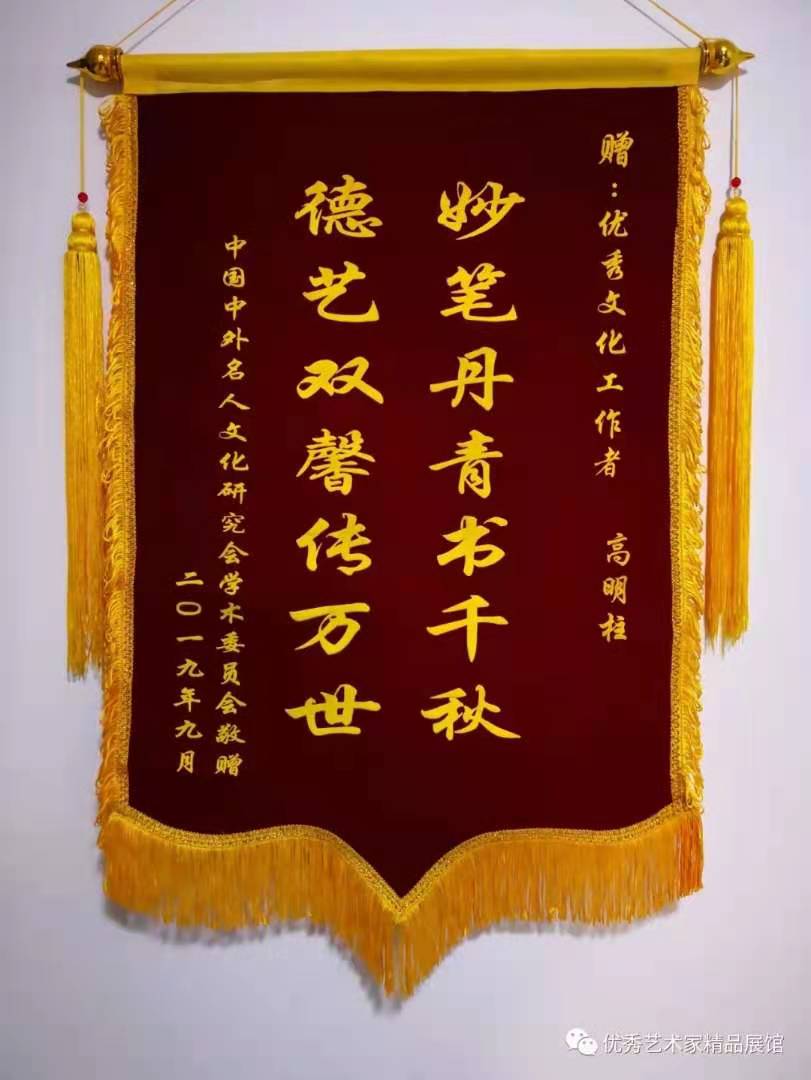 赠：优秀文化工作者 高明柱
妙笔丹青书千秋
德艺双馨传万世
中国中外名人文化研究会学术委员会敬赠
二〇一九年九月
优秀艺术家精品展馆